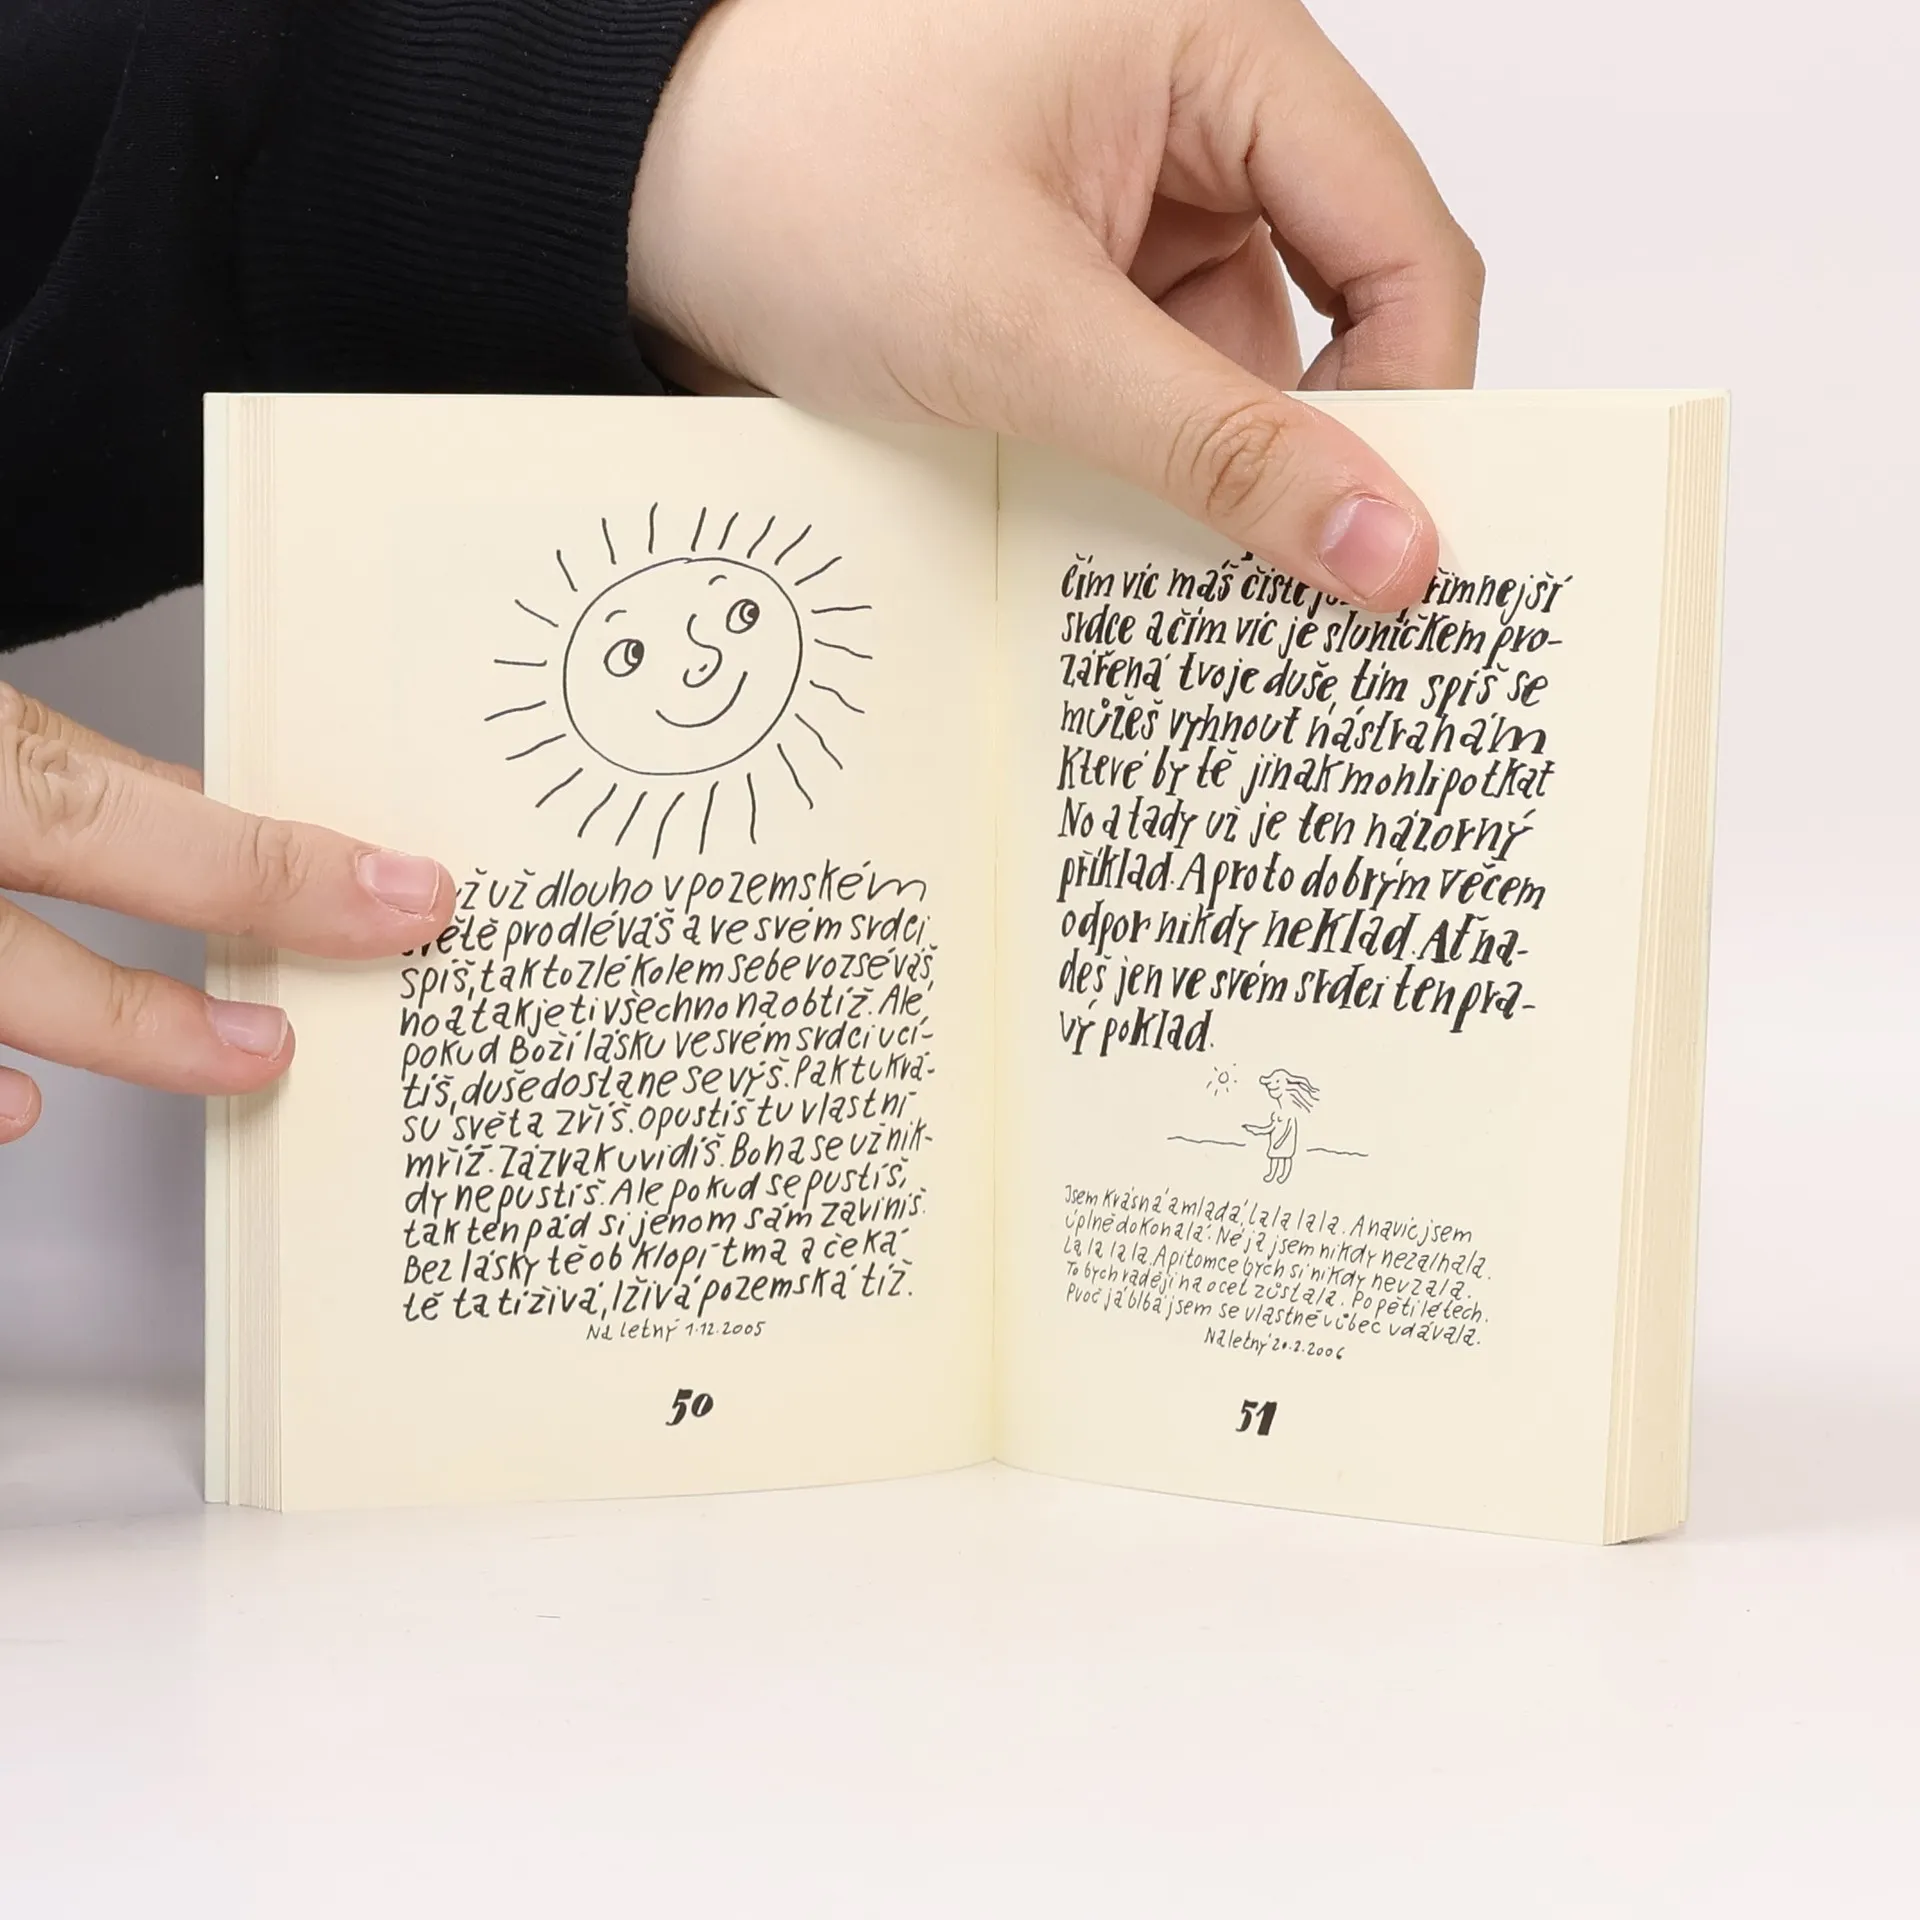 už dlouho v pozemském
prodléváš a ve svém srdci
spíš, tak to zlé kolem sebe vozséváš,
no a tak je ti všechno na obtíž. Ale,
pokud Boží lásku ve svém srdci ucí-
tíš, duše dostane se výš. Pak tu krá-
su světa zříš. Opustíš tu vlastní
mříž. Zázrak uvidíš. Boha se už nik-
dy nepustíš. Ale pokud se pustíš,
tak ten pád si jenom sám zaviníš.
Bez lásky tě obklopí tma a čeká
tě ta tíživá, lživá pozemská tíž.
Na letný 1.12.2005
50
čím víc máš
srdce a čím víc je sluníčkem pro-
zářená tvoje duše, tím spíš se
můžeš vyhnout nástrahám
Které by tě jinak mohli potkat
No a tady už je ten názorný
příklad. A proto dobrým věcem
odpor nikdy neklad. Ať na-
deš jen ve svém srdci ten pra-
vý poklad.
Jsem krásná a mladá, la la la la. A navíc jsem
úplně dokonalá. Né já jsem nikdy nezalhala.
La la la la. A pitomce bych si nikdy nevzala.
To bych raději na ocet zůstala. Po pěti létech.
Proč já blbá jsem se vlastně vůbec vdávala.
Na letný 20.2.2006
51